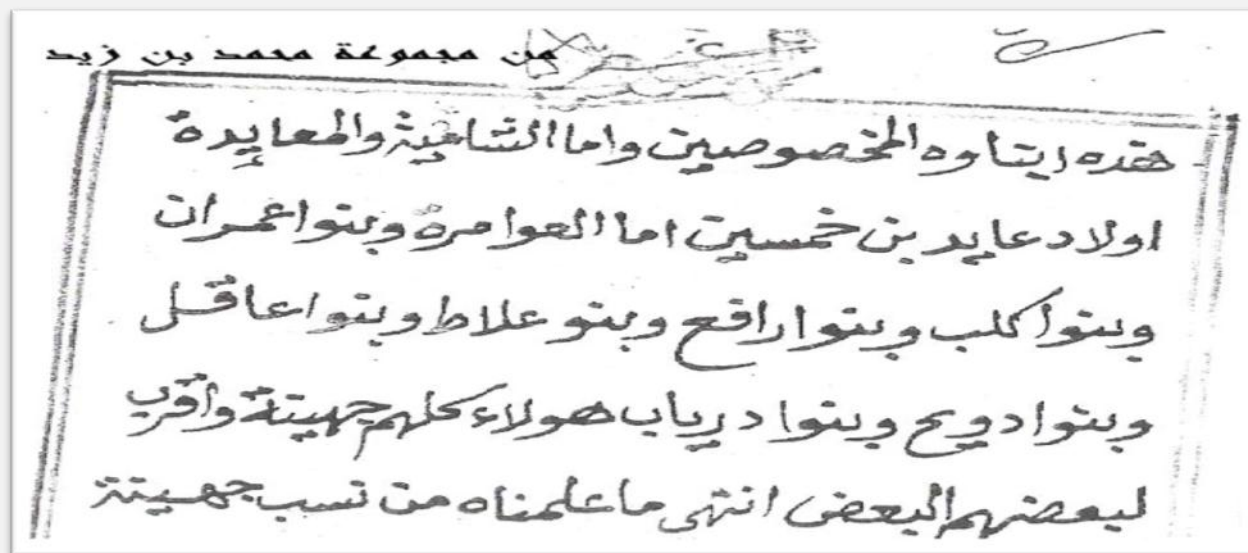 من مجموعة محمد بن زيد
هذه ابناوه المخصوصين واما الشامية والمعايدة
اولاد عايد بن خمسين اما العوامرة وبنوا عمران
وبنوا كلب وبنوا رافع وبنو علاط وبنوا عاقل
وبنوا دويح وبنوا درباب هولاء كلهم جهينة واقرب
لبعضهم البعض انتهى ما علمناه من نسب جهينة